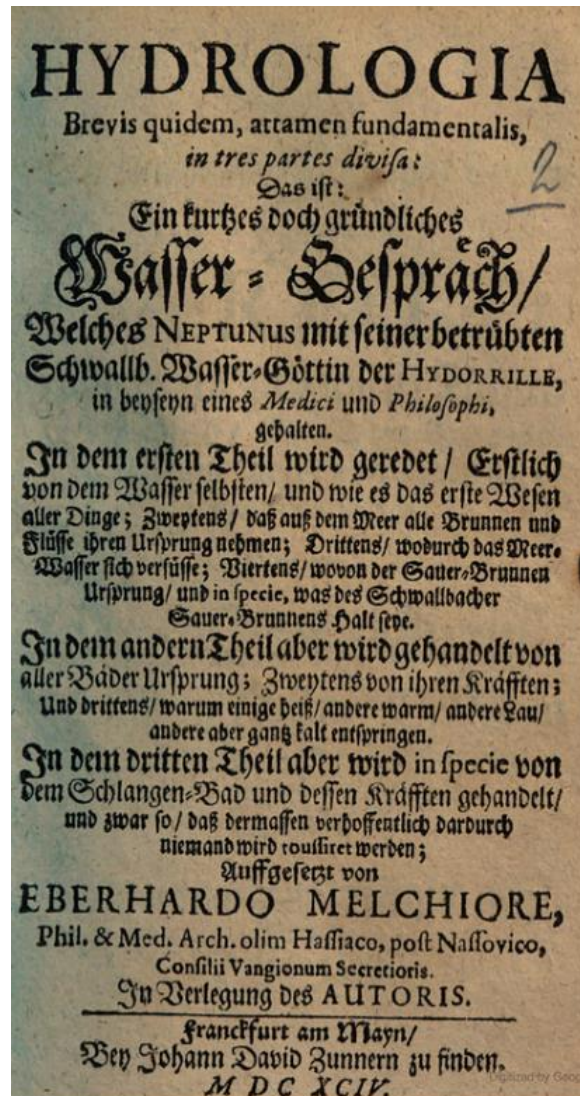 HYDROLOGIA
Brevis quidem, attamen fundamentalis,
in tres partes divisa:
2
Das ist:
Ein kurtzes doch gründliches
Wasser-Gespräch/
Welches NEPTUNUS mit seiner betrübten
Schwallb. Wasser-Göttin der HYDORRILLE,
in beyseyn eines Medici und Philosophi,
gehalten.
In dem ersten Theil wird geredet / Erstlich
von dem Wasser selbsten/ und wie es das erste Wesen
aller Dinge; Zweytens/ daß auß dem Meer alle Brunnen und
Flüsse ihren Ursprung nehmen; Drittens/ wodurch das Meer-
Wasser sich versüsse; Viertens/ wovon der Sauer-Brunnen
Ursprung/ und in specie, was des Schwallbacher
Sauer-Brunnens Halt seye.
In dem andern Theil aber wird gehandelt von
aller Bäder Ursprung; Zweytens von ihren Kräfften;
Und drittens/ warum einige heiß/ andere warm/ andere Lau/
andere aber gantz kalt entspringen.
In dem dritten Theil aber wird in specie von
dem Schlangen-Bad und dessen Kräfften gehandelt/
und zwar so/ daß dermassen verhoffentlich dardurch
niemand wird toussiret werden;
Auffgesetzt von
EBERHARDO MELCHIORE,
Phil. & Med. Arch. olim Hassiaco, post Nassovico,
Consilii Vangionum Secretioris.
In Verlegung des AUTORIS.
Franckfurt am Mayn/
Bey Johann David Zunnern zu finden.
M DC XCIV.
Digitized by Goo